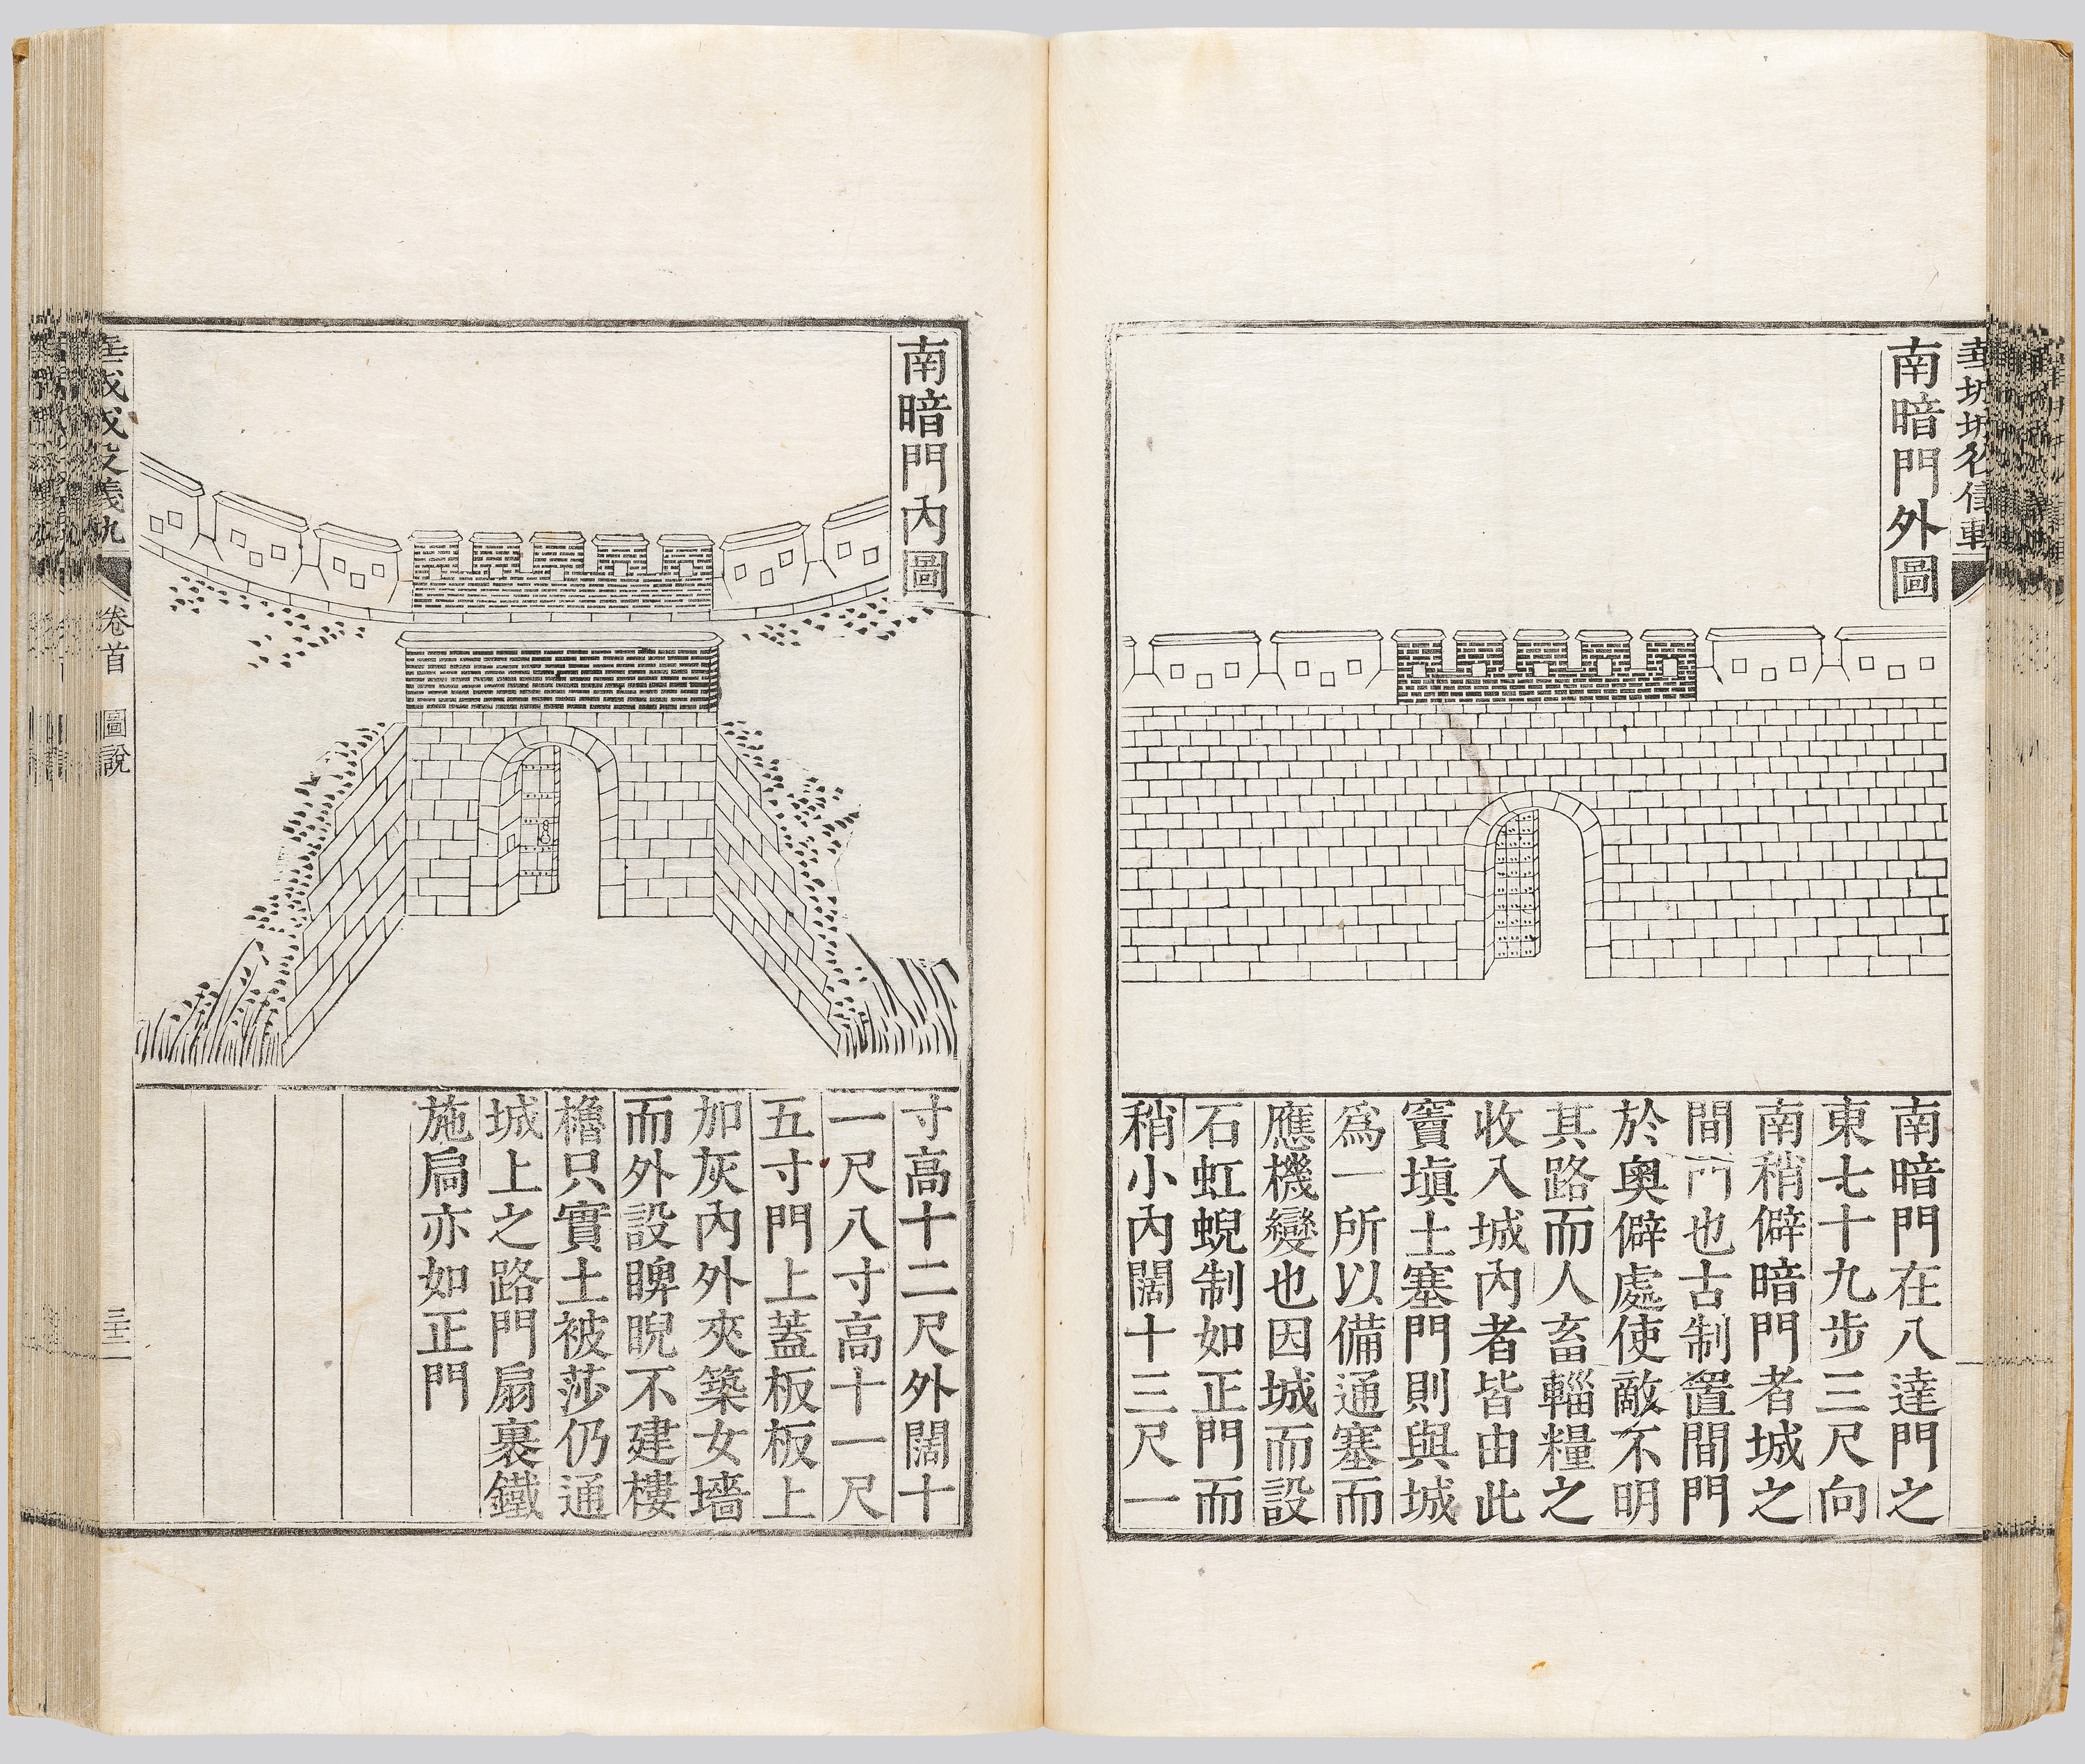 南暗門外圖
南暗門在八達門之
東七十九步三尺向
南稍僻暗門者城之
間門也古制置間門
於奧僻處使敵不明
其路而人畜輜糧之
收入城內者皆由此
竇塡土塞門則與城
爲一所以備通塞而
應機變也因城而設
石虹蜺制如正門而
稍小內闊十三尺一
南暗門內圖
寸高十二尺外闊十
一尺八寸高十一尺
五寸門上蓋板板上
加灰內外夾築女墻
而外設睥睨不建樓
櫓只實土被莎仍通
城上之路門扇裹鐵
施扃亦如正門
卷首 圖說